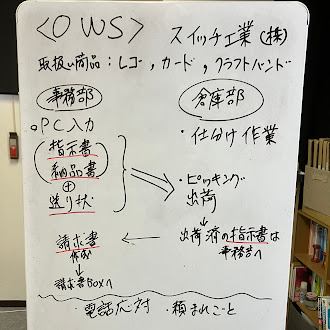 <OWS> スイッチ工業(株)
取扱い商品:レゴ,カード,クラフトバンド
事務部
。PC入力
(指示書
納品書)
⊕
送り状
請求書
作成
↓
請求書BOXへ
倉庫部
・仕分け作業
・ピッキング
出荷
↓
出荷済の指示書は
事務所へ
・電話応対 ・頼まれごと